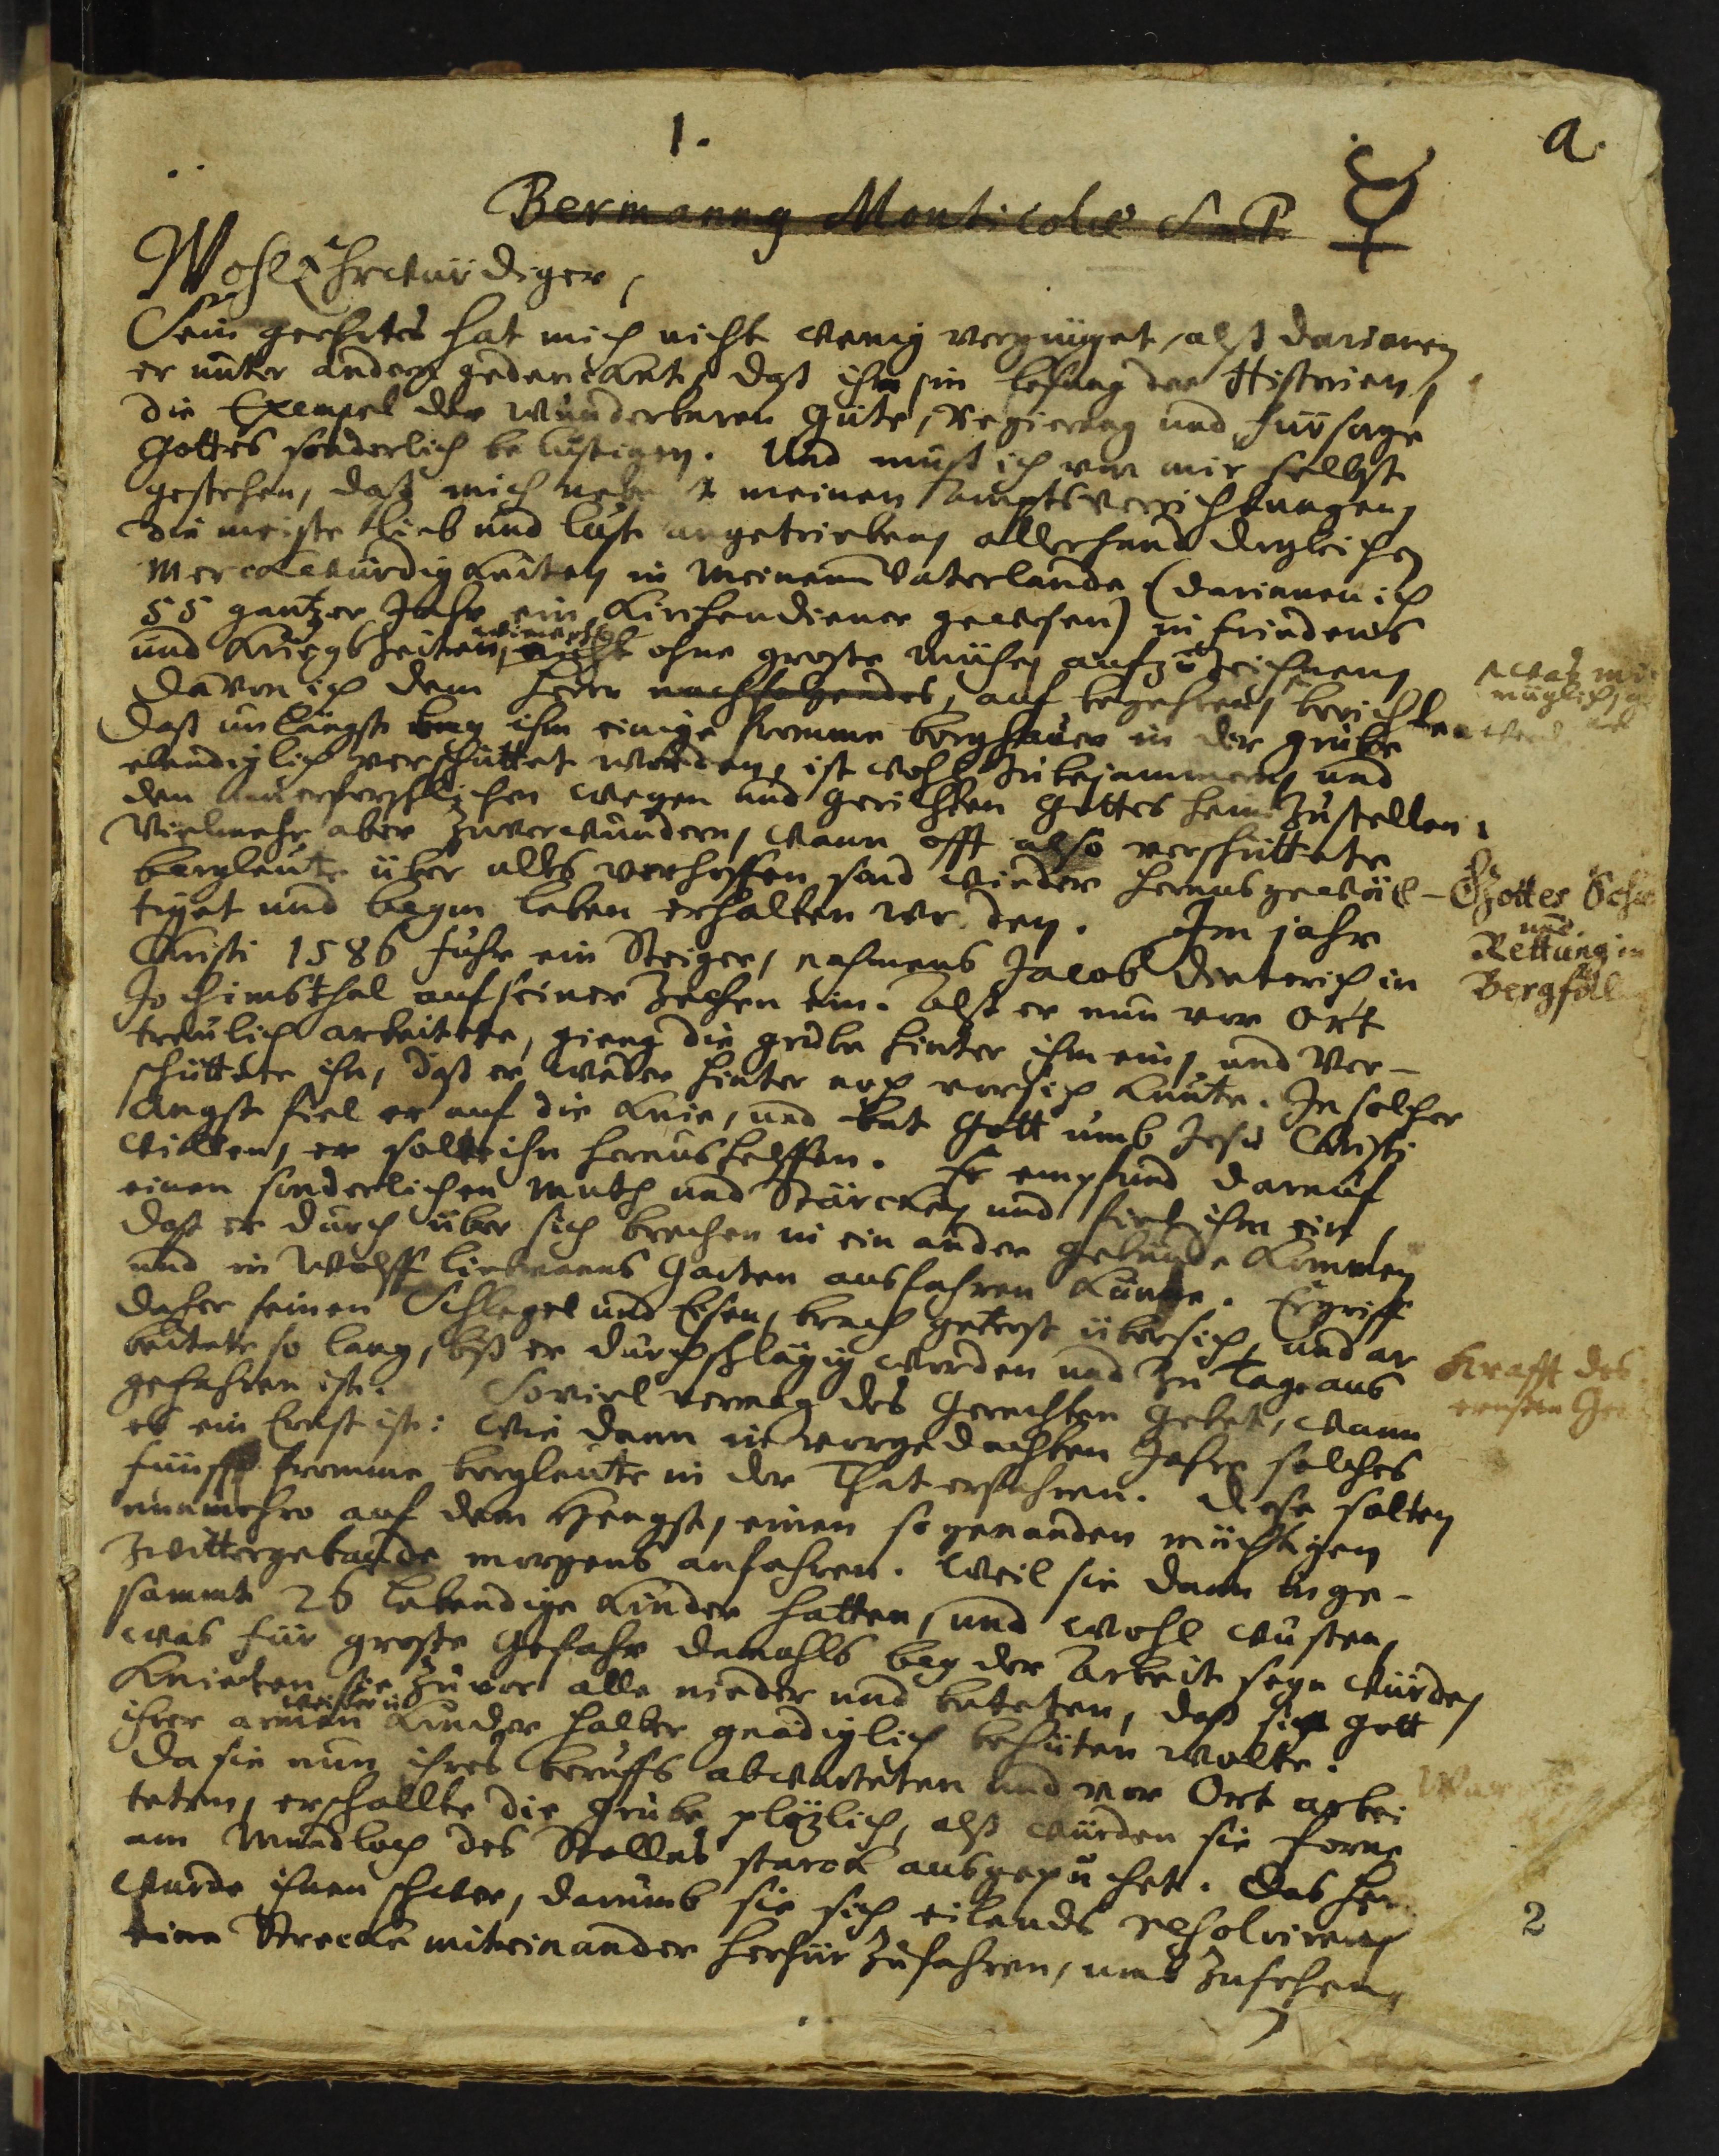 1.
a.
Bermannus Monticolæ S. P.
WohlEhrwürdiger,
Sein geehrtes hat mich nicht wenig vergnüget, alß darinnen
er unter andern gedencket, daß ihn in lesung der Historien,
die Exempel der wunderbaren Güte, Regierung und fürsorge
Gottes sonderlich belustigen. Und muß ich von mir selbst
gestehen, daß mich nebenst meinen amptsverrichtungen,
die meiste Lieb und lust angetrieben, allerhand dergleichen
Merckwürdigkeiten in Meinem Vaterlande (darinnen ich
55 gantzer Jahr ein Kirchendiener gewesen) in friedens
und Kriegszeiten, nicht ohne große mühe, aufzuzeichnen,
Davon ich dem Herrn nachfolgendes, auf begehren, berichten
Daß unlängst bey ihm einige fromme berghauer in der grube
elendiglich verschüttet worden, ist wohl zubejammern, und
den unerforschlichen wegen und gerichten Gottes heimzustellen.
Vielmehr aber zuverwundern, wann offt also verschüttete
bergleute über alles verhoffen sind wieder herausgewäl-
tiget und beym leben erhalten worden. Im jahr
Gottes
und
Rettung in
Bergfäll
Christi 1586 fuhr ein Steiger, nahmens Jacob Dieterich in
Jochimsthal auf seiner Zechen ein. Alß er nun vor Ort
treulich arbeitete, gieng die grube hinter ihm ein, und Ver-
schüttete ihn, daß er weder hinter noch vorsich kunte. In solcher
Angst fiel er auf die Knie, und bat Gott umb Jesu Christi
willen, er solte ihn heraushelffen. Er empfund darauf
einen sonderlichen Muth und Stärcke, und fiel ihm ein,
daß er durch über sich brechen in ein ander gebäude kommen
und in Wolff Liebmanns Garten ausfahren künte. Ergriff
daher seinen Schlegel und Eisen, brach getrost übersich, und ar
beitete so lang, biß er durchschlägig worden und zu Tage aus
gefahren ist. Soviel vermag des Gerechten Gebet, wann
Krafft des
ernsten
es ein Ernst ist: Wie dann in vorgedachten Jahre solches
fünff fromme bergleute in der That erfahren. Diese solten
nunmehro auf dem Hengst, einen sogenanden mächtigen
Zwittergebäude morgens anfahren. Weil sie dann inge-
sammt 26 lebendige Kinder hatten, und wohl wusten,
was für große gefahr damahls bey der Arbeit seyn würde,
Knieten sie zuvor alle nieder und beteten, daß sie Gott
ihrer armen weiber u. Kinder halber gnädiglich behüten wolte.
Da sie nun ihres beruffs abwarteten und vor Ort arbei
teten, erschallte die Grube plötzlich, alß würden sie forne
am Mundloch des Stollens starck ausgepuchet. Das
wurde ihnen schwer, darumb sie sich eilends resolviren,
eine Strecke miteinander herfür zufahren, umb zusehen,
2